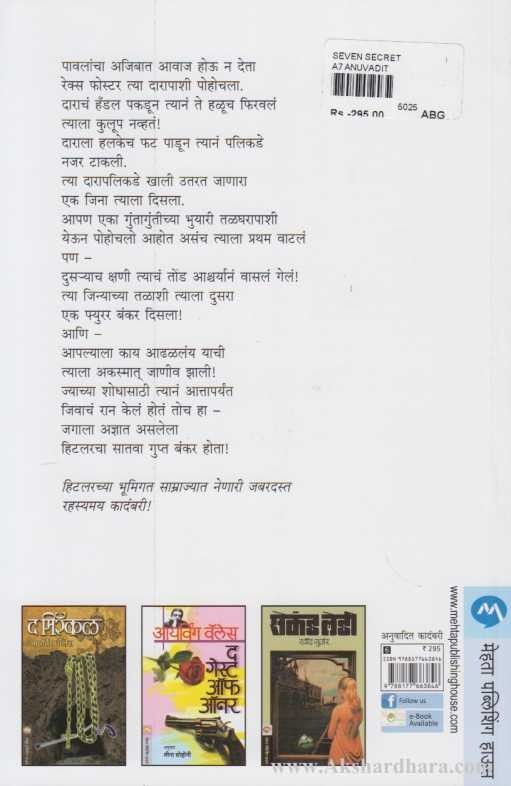 SEVEN SECRET
A7 ANUVADIT
5025
Rs -295.00 ABG
पावलांचा अजिबात आवाज होऊ न देता
रेक्स फोस्टर त्या दारापाशी पोहोचला.
दाराचं हँडल पकडून त्यानं ते हळूच फिरवलं
त्याला कुलूप नव्हतं!
दाराला हलकेच फट पाडून त्यानं पलिकडे
नजर टाकली.
त्या दारापलिकडे खाली उतरत जाणारा
एक जिना त्याला दिसला.
आपण एका गुंतागुंतीच्या भुयारी तळघरापाशी
येऊन पोहोचलो आहोत असंच त्याला प्रथम वाटलं
पण –
दुसऱ्याच क्षणी त्याचं तोंड आश्चर्यानं वासलं गेलं!
त्या जिन्याच्या तळाशी त्याला दुसरा
एक फ्युरर बंकर दिसला!
आणि –
आपल्याला काय आढळलंय याची
त्याला अकस्मात् जाणीव झाली!
ज्याच्या शोधासाठी त्यानं आत्तापर्यंत
जिवाचं रान केलं होतं तोच हा –
जगाला अज्ञात असलेला
हिटलरचा सातवा गुप्त बंकर होता!
हिटलरच्या भूमिगत साम्राज्यात नेणारी जबरदस्त
रहस्यमय कादंबरी!
द मिरॅकल
आयर्विंग वॅलेस
द
गेस्ट
ऑफ
ऑनर
अनुवाद
लीना सोहोनी
सेकंड लेडी
रवींद्र गुर्जर
अनुवादित कादंबरी
₹ 295
ISBN 9788177663846
9 788177 663846
Follow us
e-Book
Available
www.mehtapublishinghouse.com
मेहता पब्लिशिंग हाऊस
www.Akshardhara.com